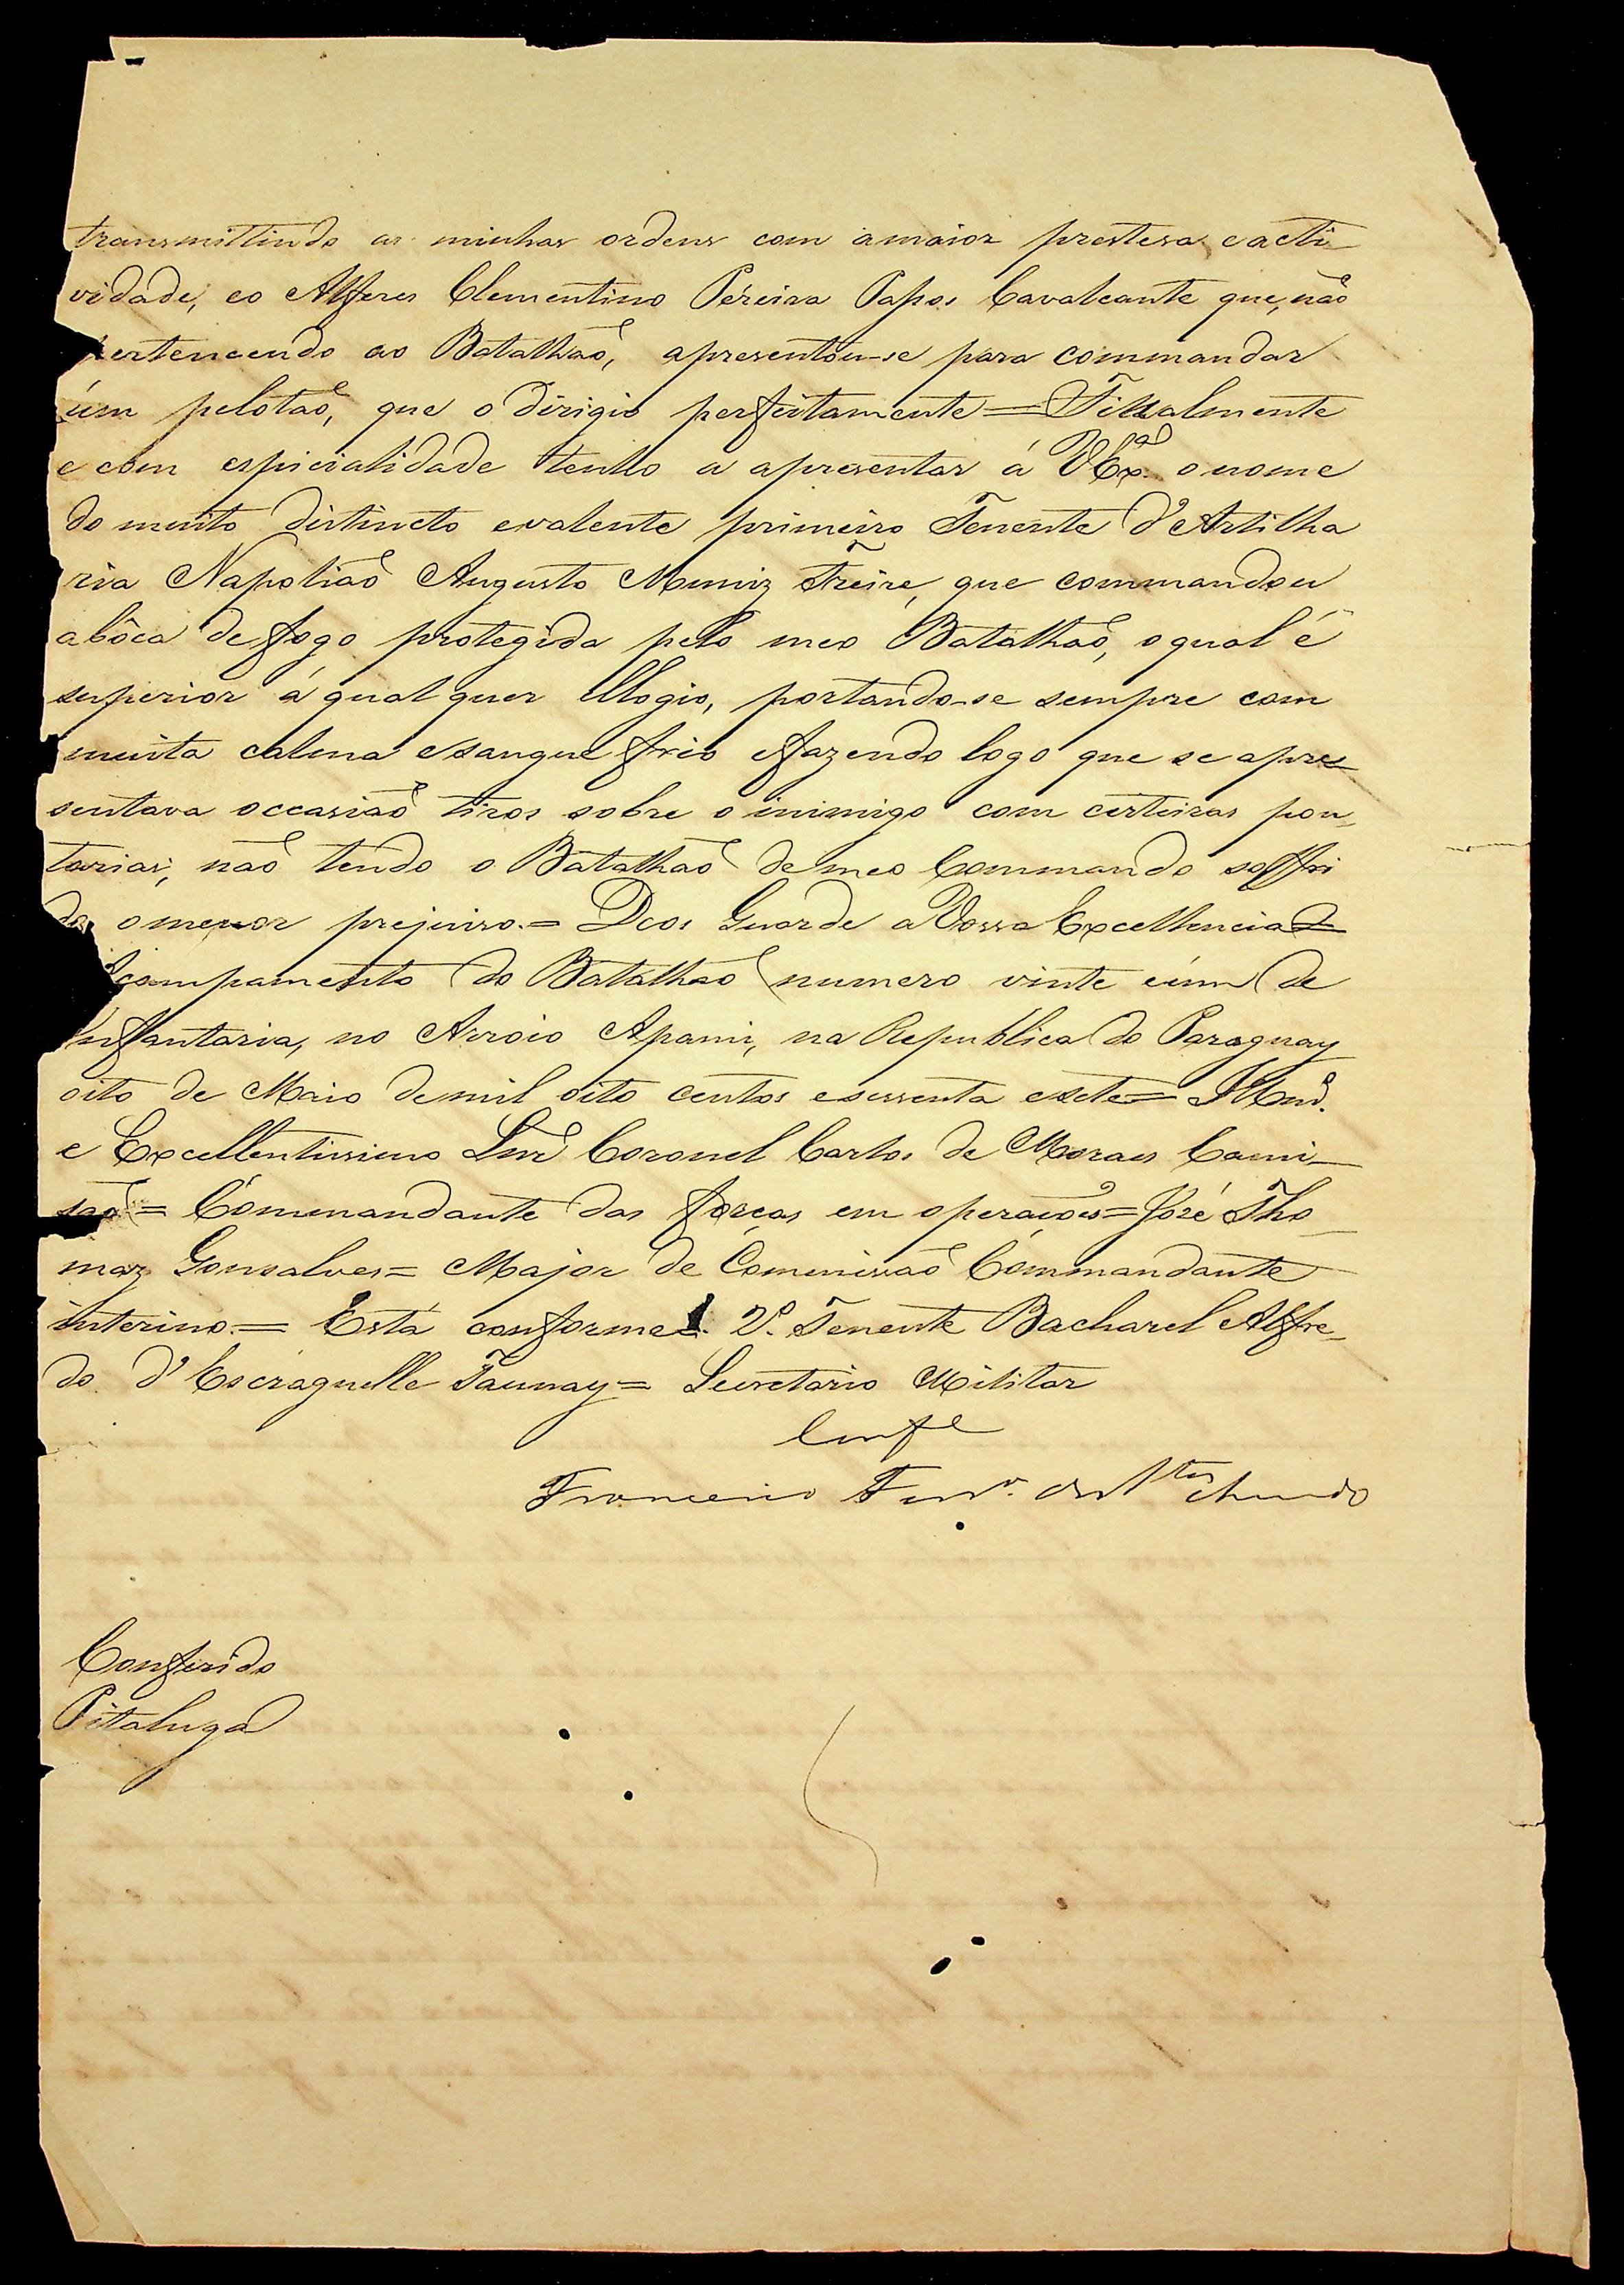 transmittindo as minhas ordens com amaior prestesa, eacti
vidade, eo Alferes Clementino Pereira Papos Cavalcante que, não
pertencendo ao Batalhaõ, apresentou-se para commandar
úm pelotaõ, que o dirigio perfeitamente = Finalmente
e com espicialidade tenho a apresentar á VExª. onome
do muito distincto evalente primeiro Tenente d'Artilha
ria Napoliaõ Augusto Muniz Freire, que commandou
abôca defogo protegida pelo meo Batalhaõ, oqual é
superior á qual quer ellogio, portando-se sempre com
muita calma esangue frio efazendo logo que se apre
sentava occasiaõ tiros sobre o inimigo com certeiras pon
tarias, naõ tendo o Batalhaõ demeo Commando soffri
do omenor prejuiso. = Deos Guarde aVossa Excellencia =
campamento do Batalhaõ numero vinte eúm de
Infantaria, no Arroio Apami, na Republica do Paraguay
oito de Maio demil oito centos esessenta esete = Illmº.
e Excellentissimo Snr Coronel Carlos de Moraes Cami-
saõ = Commandante das forças em operaçoẽs = José Tho
maz Gonsalves = Major de Commissaõ Commandante
interino. = Está conforme. 2º. Tenente Bacharel Alfre-
do d'Escragnolle Taunay = Secretario Militar
Confe
Francisco
Conferido
Pitaluga